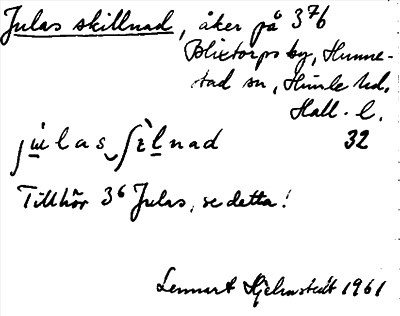 Julas skillnad, åker på 3⁷6
Blixtorps by, Hunne-
stad sn, Himle hd,
Hall. l.
32
Tillhör 3⁶ Julas, se detta!
Lennart Hjelmstedt 1961